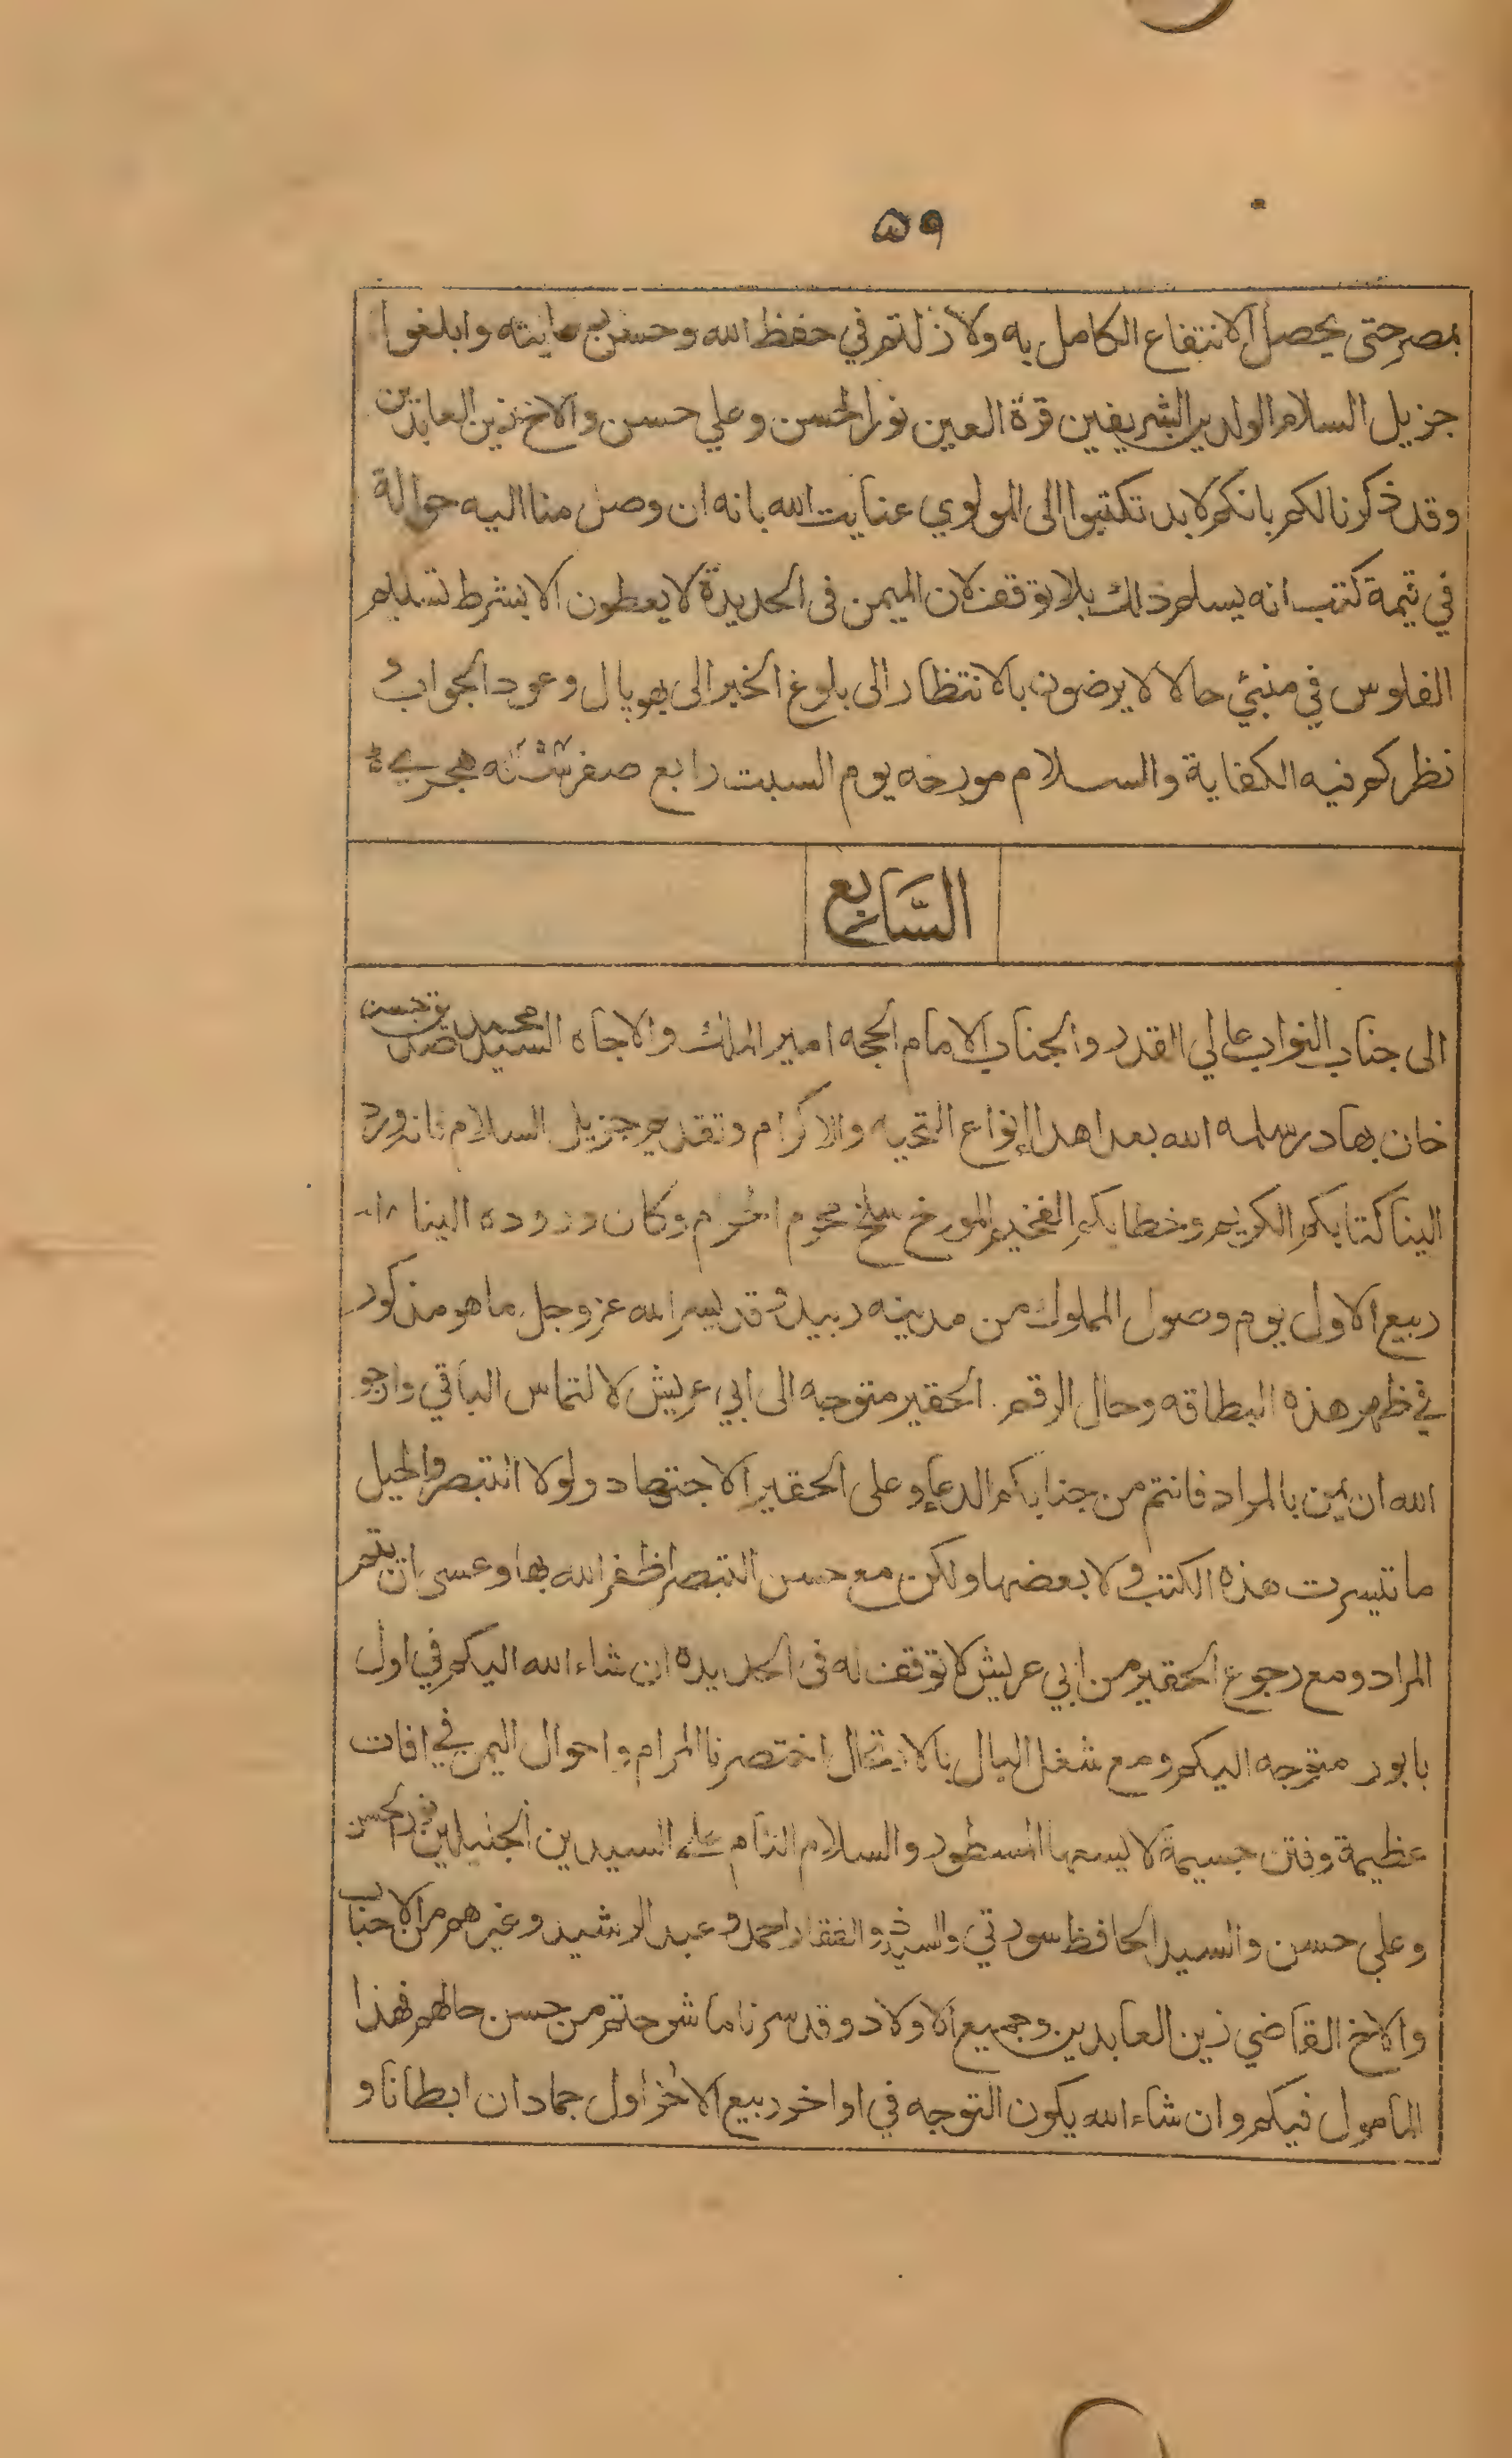 ۵۹
بمصر حتى يحصل الانتفاع الكامل به ولا زلتم في حفظ الله وحسن رعايته وابلغوا
جزيل السلام الولدين الشريفين قرة العين نور الحسن وعلي حسن والاخ زين العابدين
وقد ذكرنا لكم بانكم لابد تكتبوا الى المولوي عنايت الله بانه ان وصل منا اليه حوالة
في تيمة كتب انه يسلم ذلك بلا توقف لان الميمن فى الحديدة لا يعطون الا بشرط تسليم
الفلوس في منبئي حالا لا يرضون بالانتظار الى بلوغ الخبر الى بهوپال وعود الجواب و
نظركم فيه الكفاية والسلام مورخه يوم السبت رابع صفر هجري
السَّابع
الى جناب النواب عالي القدر والجناب الامام الحجه امير الملك والاجاه السيد محمد صديق حسن
خان بهادر سلمه الله بعد اهدا انواع التحيه والاكرام وتقديم جزيل السلام فانه ورد
الينا كتابكم الكريم وخطابكم الفخيم المورخ سلخ محرم الحرام وكان وروده الينا
ربيع الاول يوم وصول المملوك من مدينه زبيد وقد يسر الله عز وجل ما هو مذكور
في ظهر هذه البطاقه وحال الرقم الحقير متوجه الى ابي عريش لالتماس الباقي وارجو
الله ان يمن بالمراد فانتم من جنابكم الدعاء وعلى الحقير الاجتهاد ولولا التبصر والحيل
ما تيسرت هذه الكتب ولا بعضها ولكن مع حسن التبصر اظفر الله بها وعسى ان يتم
المراد ومع رجوع الحقير من ابي عريش لا توقف له فى الحديدة ان شاء الله اليكم في اول
بابور متوجه اليكم ومع شغل البال بالارتحال اختصرنا المرام واحوال اليمن في افات
عظيمة وفتن جسيمة لا يسعها المسطور والسلام التام على السيدين الجليلين نور الحسن
وعلي حسن والسيد الحافظ سورتي والسيد ذو الفقار احمد وعبد الرشيد وغيرهم من الاحباب
والاخ القاضي زين العابدين وجميع الاولاد وقد سرنا ما شرحتم من حسن حالهم فهذا
المأمول فيكم وان شاء الله يكون التوجه في اواخر ربيع الاخر اول جماد ان ابطانا و